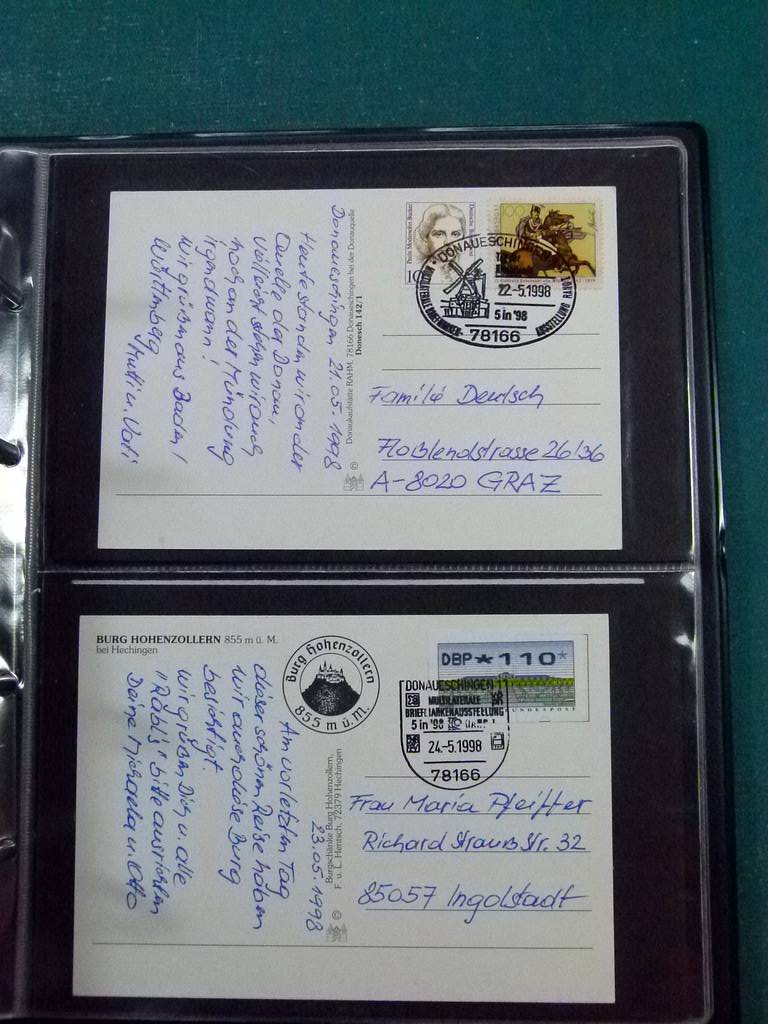 Donaueschingen 21.05.1998
Heute standen wir an der
Quelle der Donau,
vielleicht stehen wir auch
noch an der Mündung
irgendwann!
Wir grüßen aus Baden /
Württemberg
Mutti u. Vati
Donaukaufstätte RAHM, 78166 Donaueschingen bei der Donauquelle
Donesch 142/1
©
Paula Modersohn-Becker
Deutsche
10
100
DONAUESCHINGEN
22.-5.1998
5 in '98
AUSSTELLUNG
78166
Familie Deutsch
Floßlendstrasse 26/36
A-8020 GRAZ
BURG HOHENZOLLERN 855 m ü. M.
bei Hechingen
Burg Hohenzollern
855 m ü. M.
DBP * 110 *
BUNDESPOST
DONAUESCHINGEN 1
MULTILATERALE
BRIEFMARKENAUSSTELLUNG
5 in '98
24.-5.1998
78166
23.05.1998
Am vorletzten Tag
dieser schönen Reise haben
wir auch diese Burg
besichtigt.
Wir grüßen Dich u. alle
"Rabl's" bitte ausrichten
Deine u. Otto
Burgschänke Burg Hohenzollern,
F. u. L. Hentsch, 72379 Hechingen
©
Frau Maria Pfeiffer
Richard Strauss Str. 32
85057 Ingolstadt